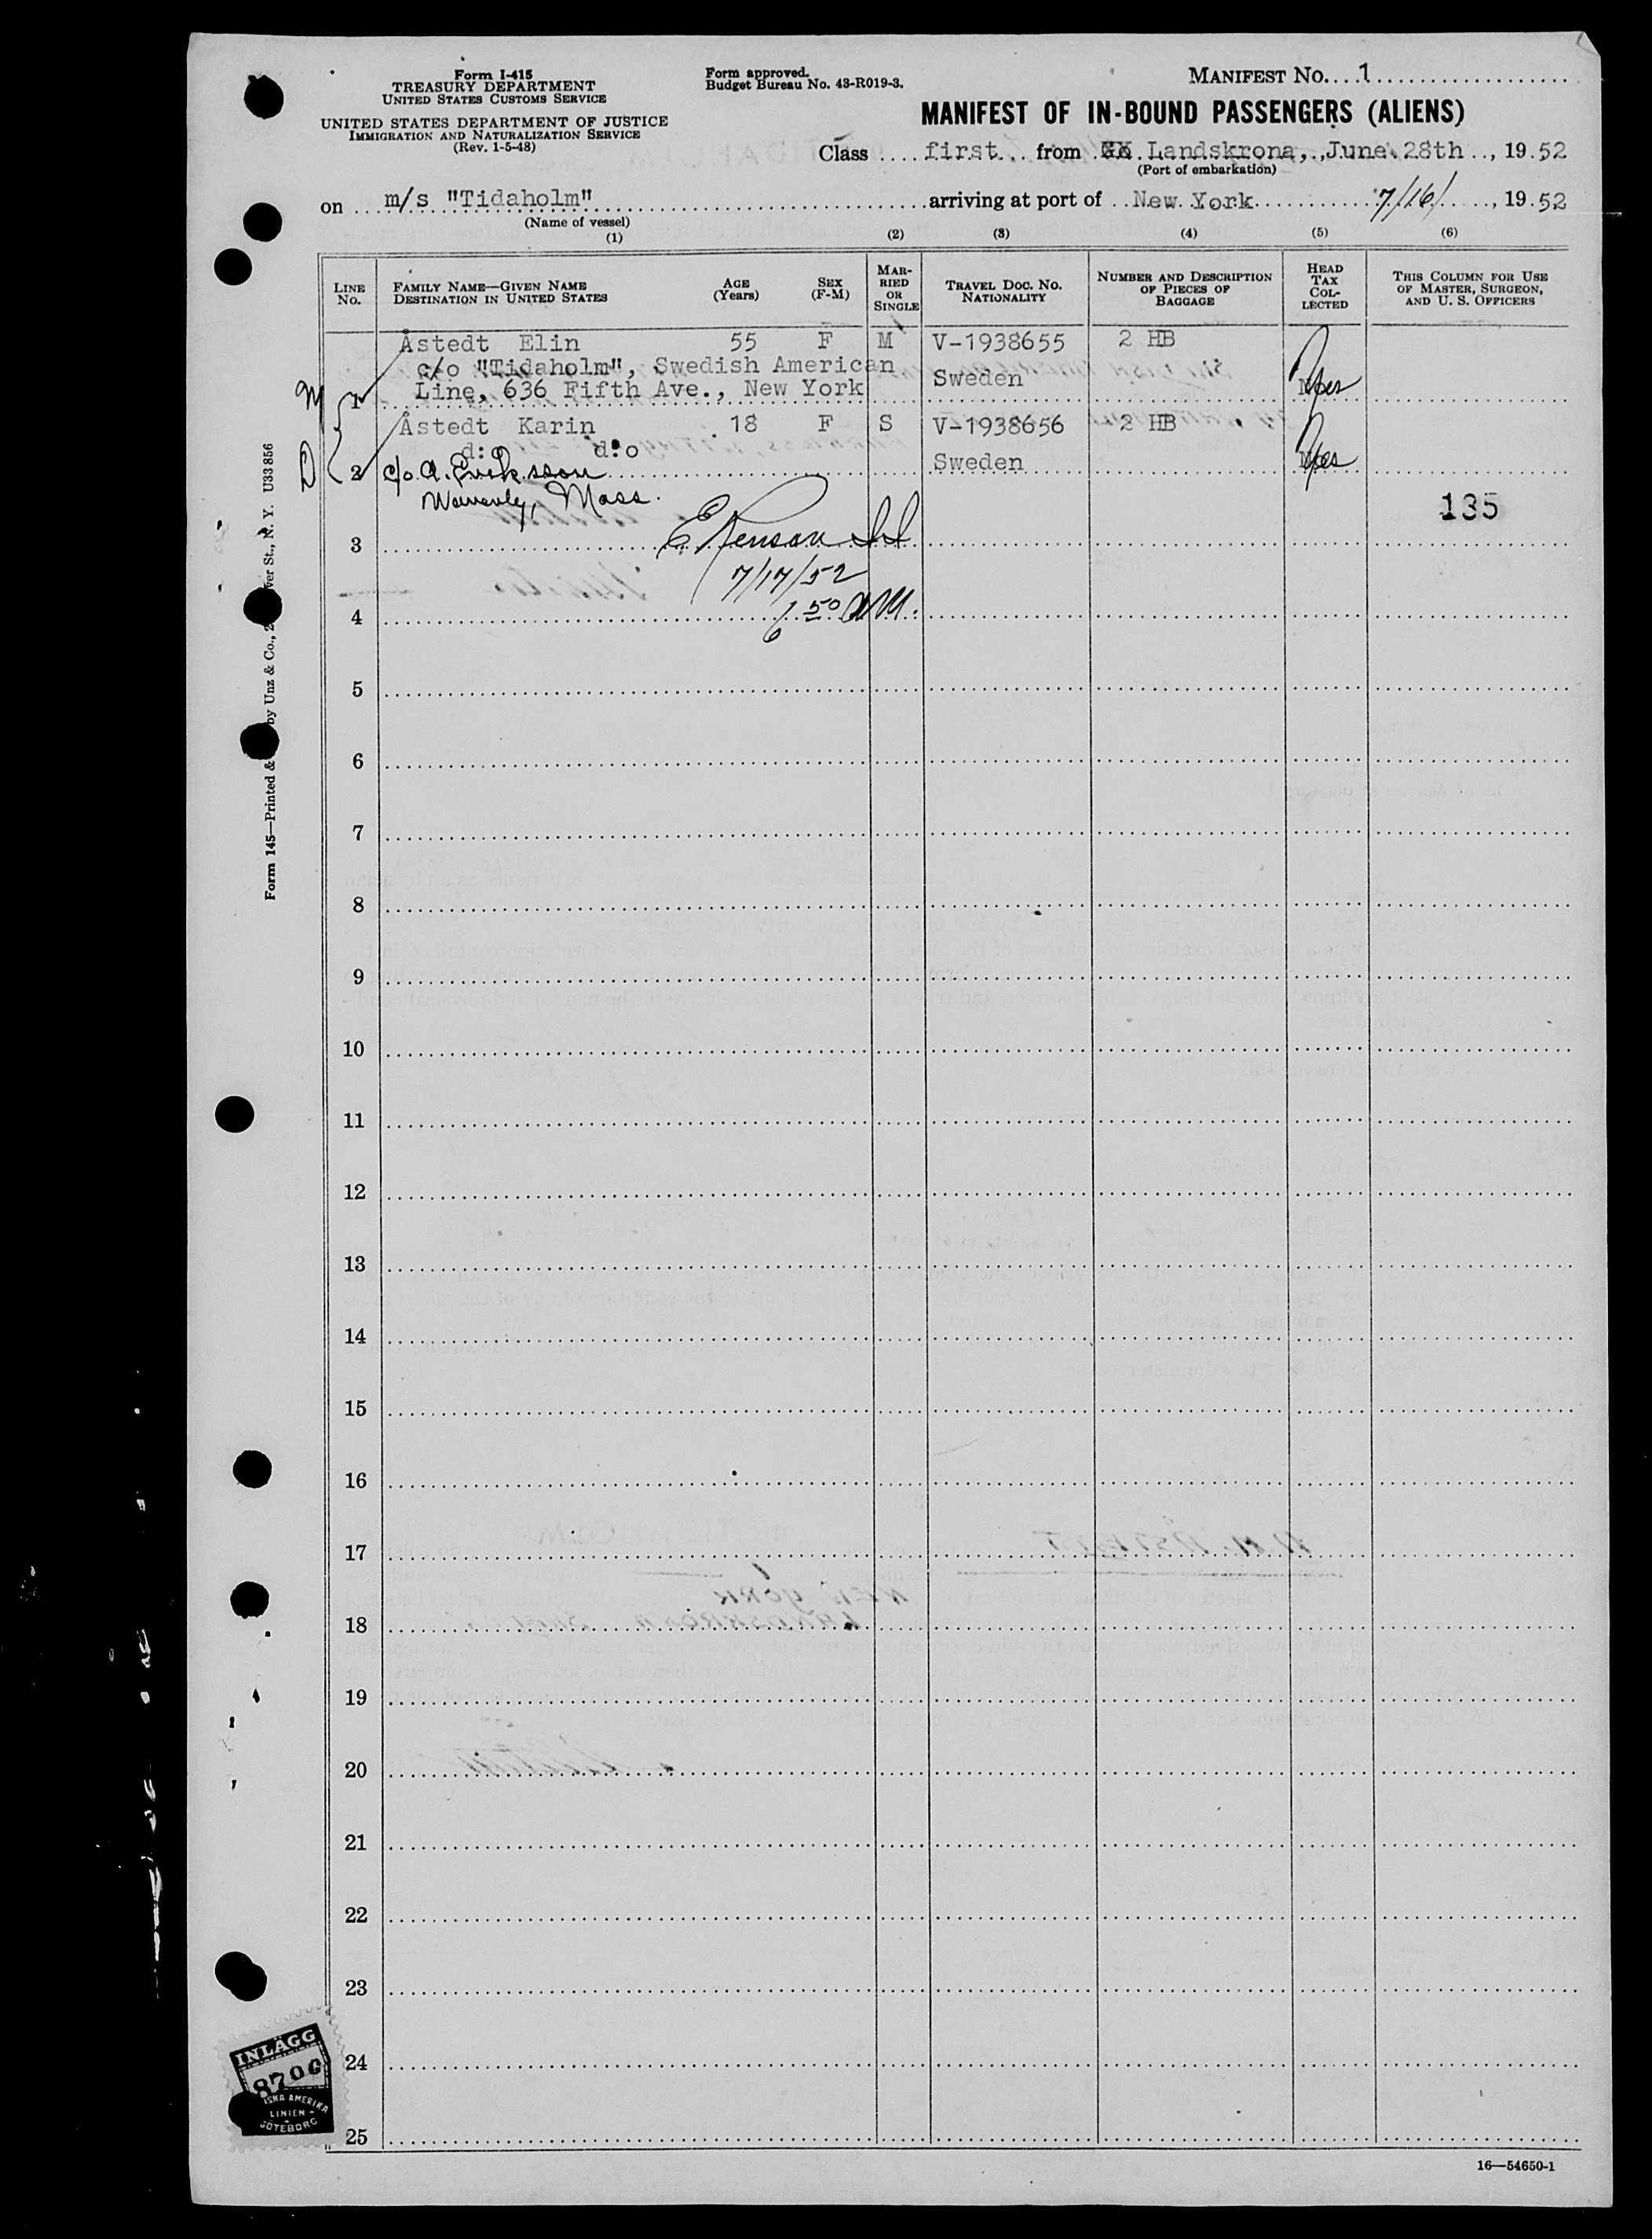 Form I-415
TREASURY DEPARTMENT
UNITED STATES CUSTOMS SERVICE
UNITED STATES DEPARTMENT OF JUSTICE
IMMIGRATION AND NATURALIZATION SERVICE
(Rev. 1-5-48)
Form approved.
Budget Bureau No. 43-R019-3.
MANIFEST NO. 1
MANIFEST OF IN-BOUND PASSENGERS (ALIENS)
Class first from Landskrona, June 28th, 1952
(Port of embarkation)
on m/s "Tidaholm" arriving at port of New York 7/16/, 1952
(Name of vessel)
(1) (2) (3) (4) (5) (6)
LINE NO. FAMILY NAME—GIVEN NAME DESTINATION IN UNITED STATES AGE (Years) SEX (F-M) MARRIED OR SINGLE TRAVEL DOC. NO. NATIONALITY NUMBER AND DESCRIPTION OF PIECES OF BAGGAGE HEAD TAX COLLECTED THIS COLUMN FOR USE OF MASTER, SURGEON, AND U. S. OFFICERS
Åstedt Elin 55 F M V-1938655 2 HB
c/o "Tidaholm", Swedish American
Sweden
M 1 Line, 636 Fifth Ave., New York Yes
Åstedt Karin 18 F S V-1938656 2 HB
d:o d:o
D 2 c/o A. Ericksson Sweden Yes
Waverly, Mass.
135
3
7/17/52
4 6 50 AM.
5
6
7
8
9
10
11
12
13
14
15
16
17
18
19
20
21
22
23
24
25
16—54650-1
Form 145—Printed & by Unz & Co., 2 ver St., N. Y. U33856
INLÄGG
8706
SKA AMERIKA
LINIEN
GÖTEBORG